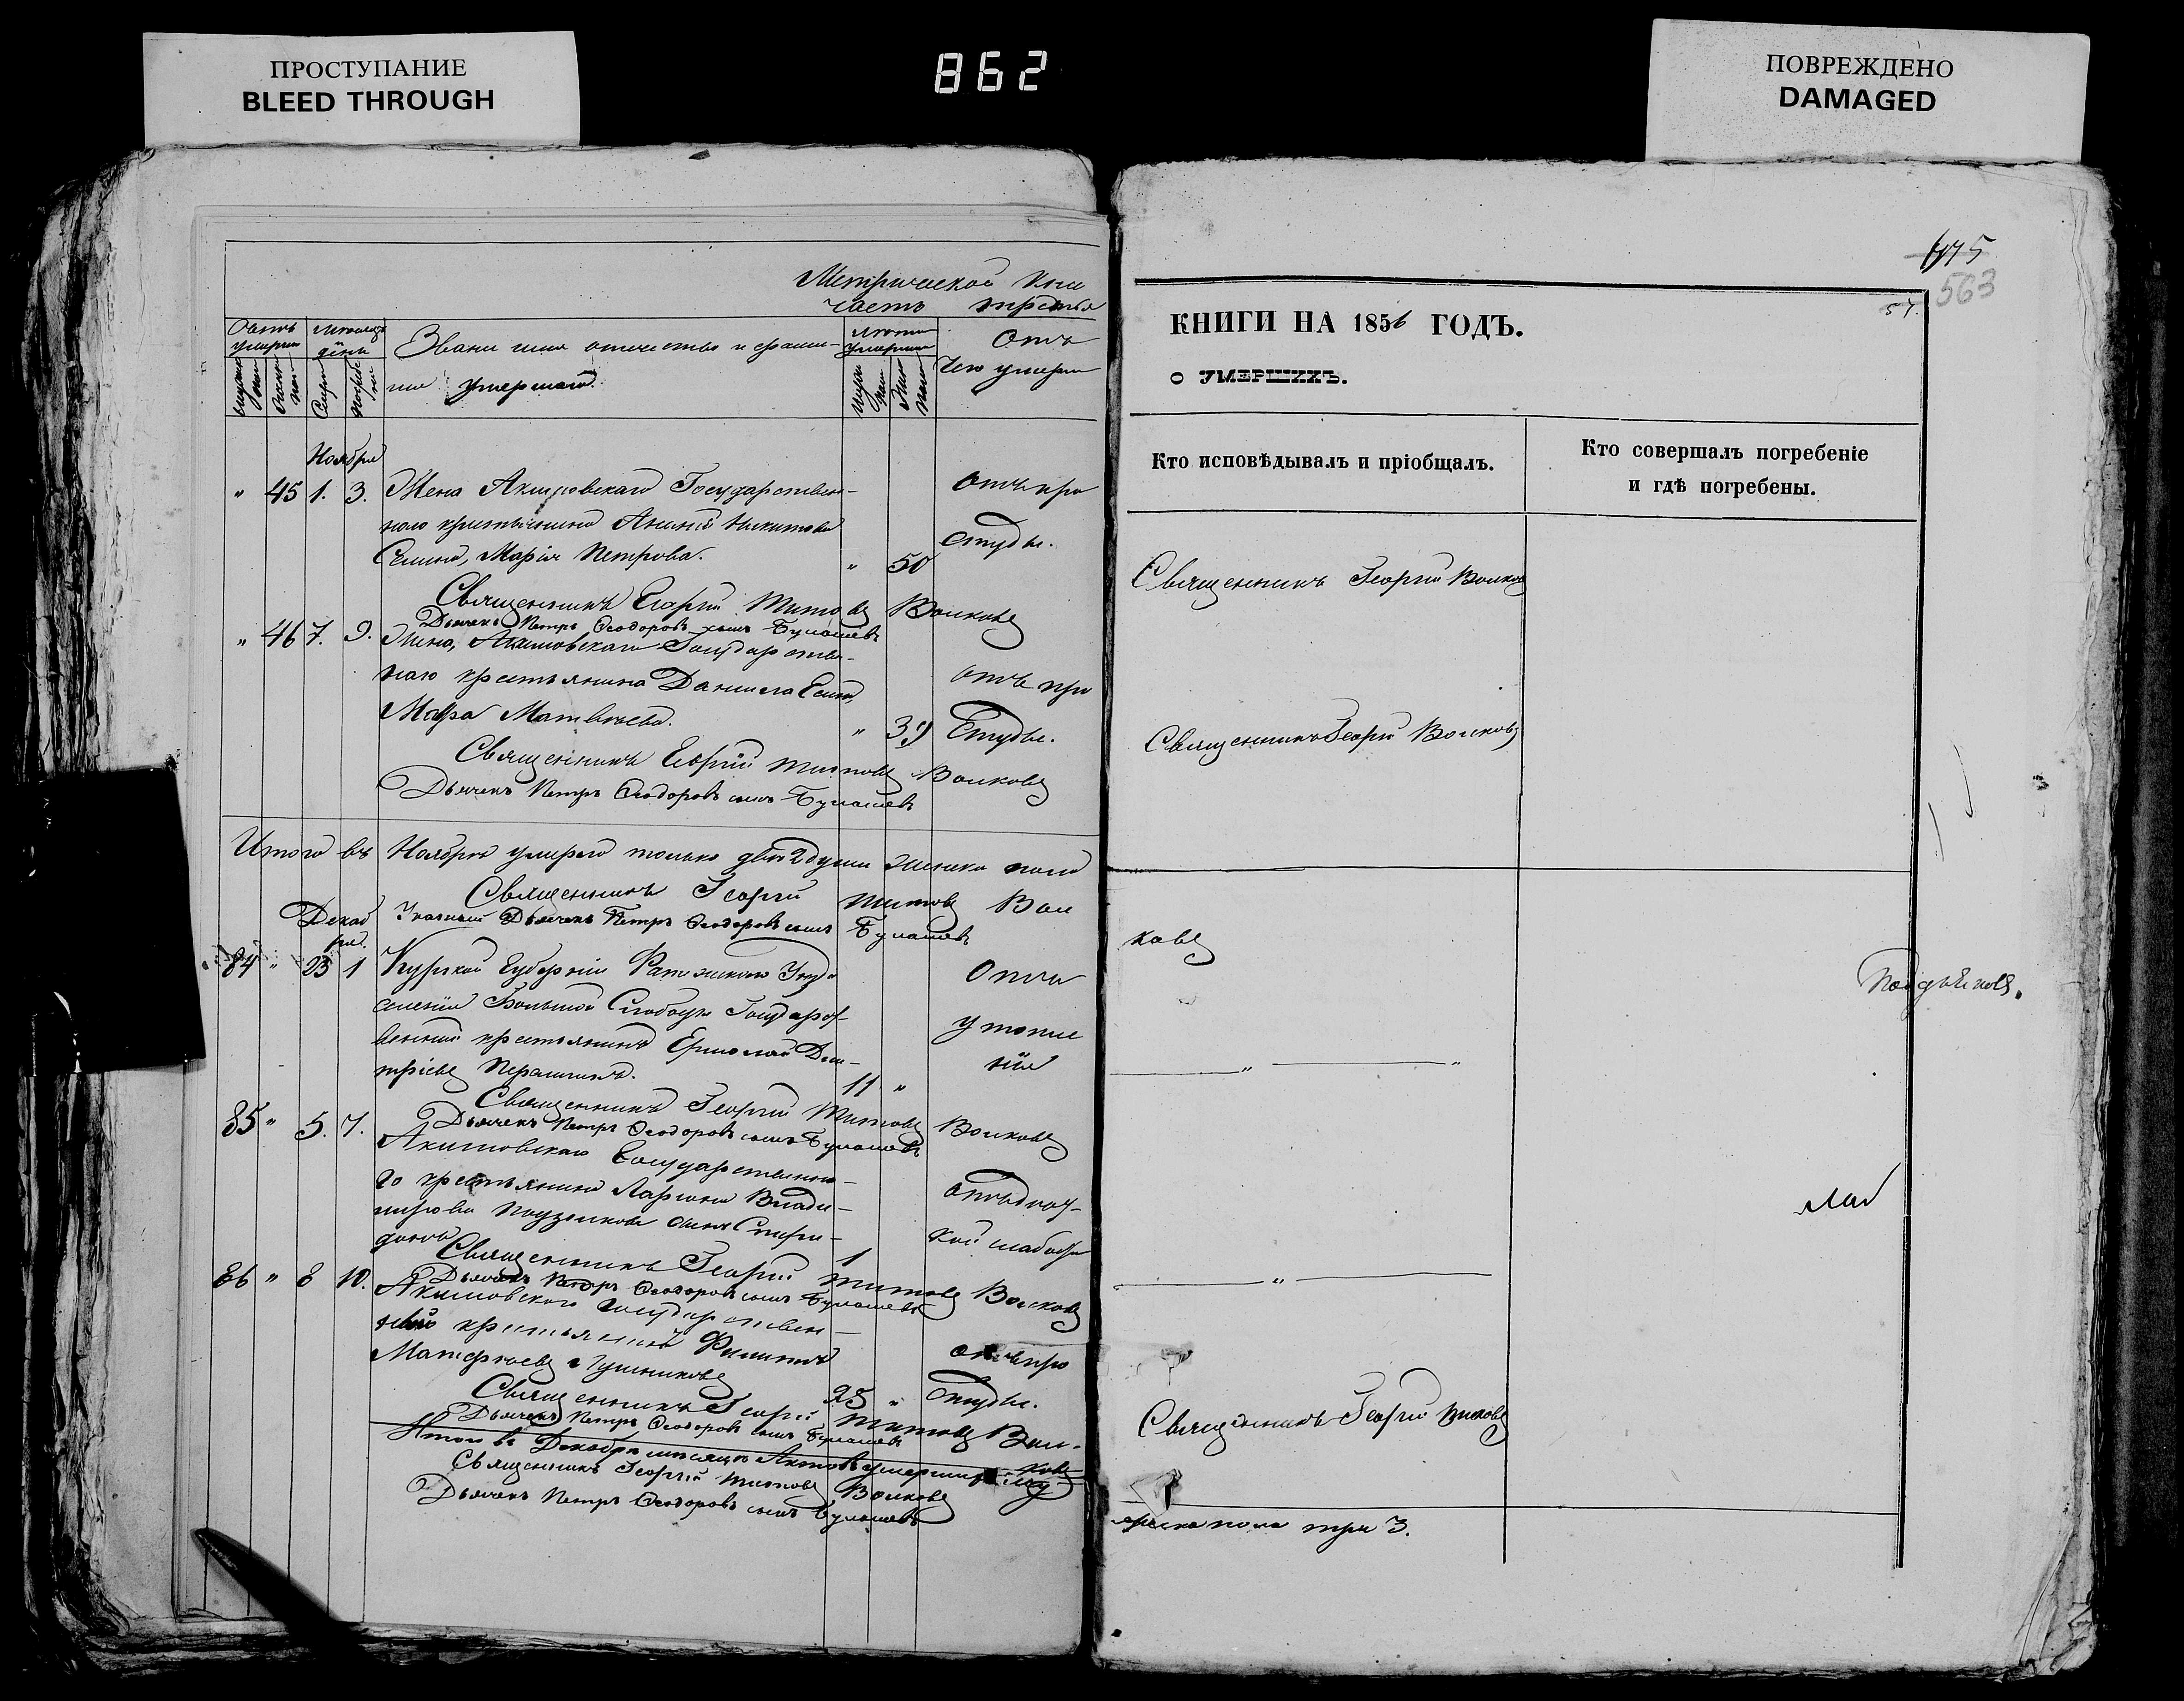 ПРОСТУПАНИЕ
BLEED THROUGH
862
ПОВРЕЖДЕНО
DAMAGED
Метрической Кни
часть третья
Званіе имя отечество и фами-
ліе умершаго.
Отъ
чего умеръ
Ноября
" 45 1. 3. Жена Акимовскаго Государствен-
наго крестьянина Ананія Никитова
Семина, Марія Петрова. " 50
отъ про
студы.
Священникъ Георгій Титовъ Волковъ
Дьячекъ Петръ Ѳеодоровъ сынъ Булашевъ
" 46 7. 9. Жена, Акимовскаго Государствен-
наго крестьянина Даниила
Матвѣева. " 39
отъ про
студы.
Священникъ Георгій Титовъ Волковъ
Дьячекъ Петръ Ѳеодоровъ сынъ Булашевъ
Итого въ Ноябрѣ умерло только двѣ 2 души женска пола
Священникъ Георгій Титовъ Вол
Дьячекъ Петръ Ѳеодоровъ сынъ Булашевъ
Декаб
ря.
84 " 23 1 Курской Губерніи Фатежскаго Уѣзда
селенія Большой Слободы Государст-
венный крестьянинъ Ермолай Дми-
тріевъ 11 "
Отъ
утопле
нія
Священникъ Георгій Титовъ Волковъ
Дьячекъ Петръ Ѳеодоровъ сынъ Булашевъ
85 " 5. 7. Акимовскаго Государственна-
го крестьянина Ларіона Влади-
мірова сынъ Спири-
донъ 1
Священникъ Георгій Титовъ Волковъ
Дьячекъ Петръ Ѳеодоровъ сынъ Булашевъ
86 " 8 10. Акимовскаго Государствен-
крестьянинъ Филиппъ
25 "
отъ про
студы.
Священникъ Георгій Титовъ Вол-
ковъ
Дьячекъ Петръ Ѳеодоровъ сынъ Булашевъ
Итого въ Декабрѣ мѣсяцѣ Актовъ умершихъ му
Священникъ Георгій Титовъ Волковъ
Дьячекъ Петръ Ѳеодоровъ сынъ Булашевъ
563
57.
КНИГИ НА 1856 ГОДЪ.
О УМЕРШИХЪ.
Кто исповѣдывалъ и пріобщалъ.
Кто совершалъ погребеніе
и гдѣ погребены.
Священникъ Георгій Волковъ
Священникъ Георгій Волковъ
ковъ
Священникъ Георгій Волковъ
жеска пола три 3.